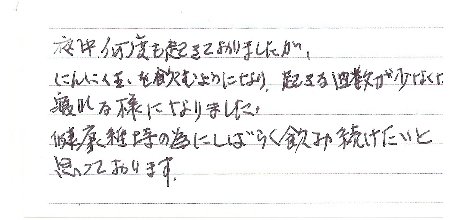 夜中何度も起きておりましたが、
にんにく玉を飲むようになり、起きる回数が少なく
寝れる様になりました。
健康維持の為にしばらく飲み続けたいと
思っております。